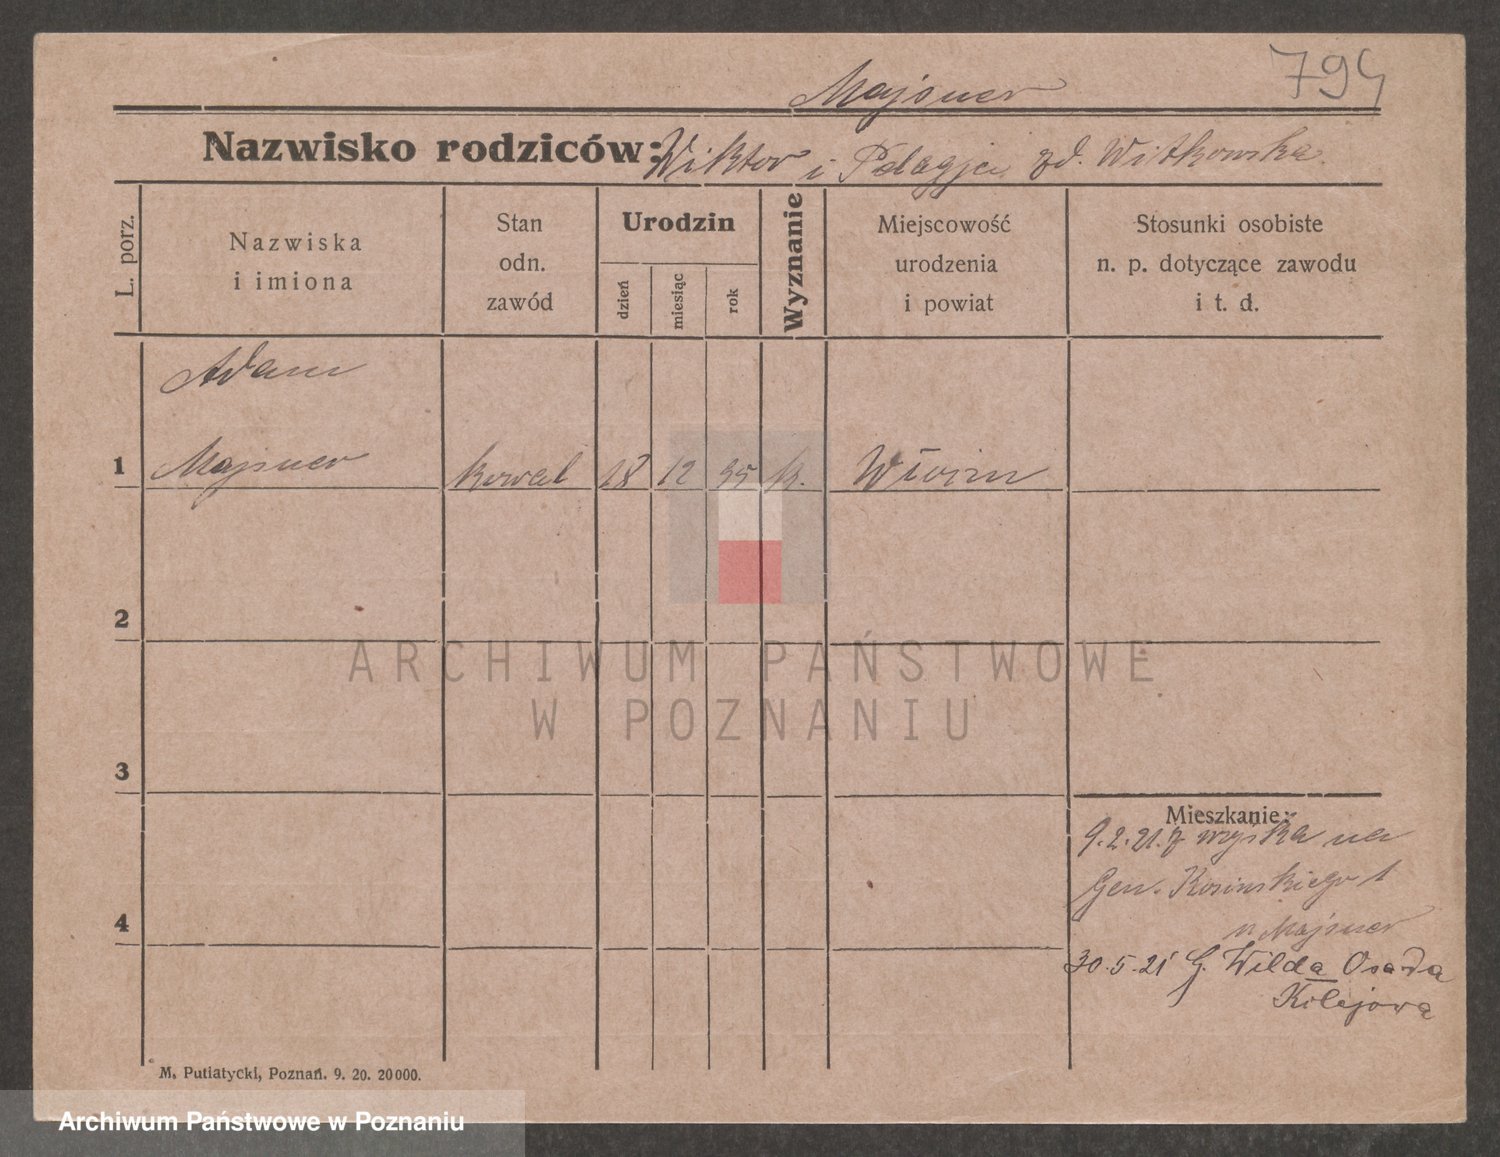 794
Majsner
Nazwisko rodziców: Wiktor i Pelagja zd. Witkowska.
L. porz.
Nazwiska
i imiona
Stan
odn.
zawód
Urodzin
dzień
miesiąc
rok
Wyznanie
Miejscowość
urodzenia
i powiat
Stosunki osobiste
n. p. dotyczące zawodu
i t. d.
Adam
1 Majsner kowal 18 12 95 k.
2
3
4
Mieszkanie:
9.2.21. z wojska na
Gen. Kosinskiego 1
u Majsner
30.5.21 G. Wilda Osada
Kolejowa
M. Putiatycki, Poznań. 9. 20. 20000.
ARCHIWUM PAŃSTWOWE
W POZNANIU
Archiwum Państwowe w Poznaniu